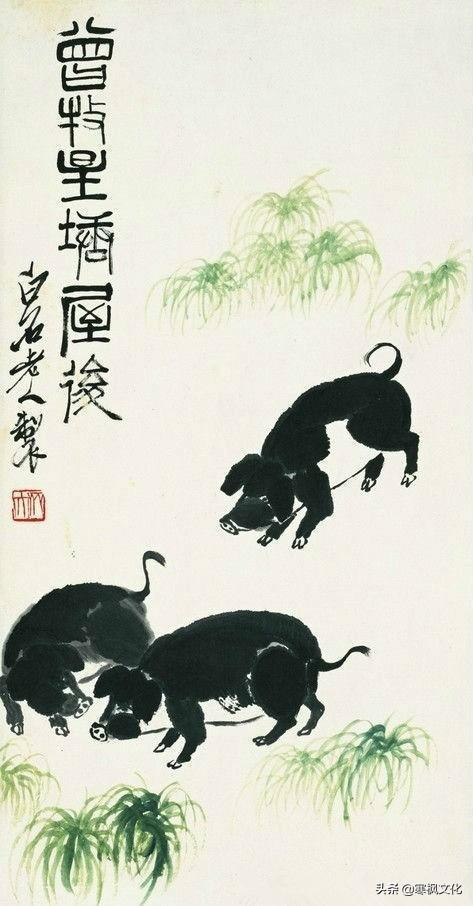 曾牧星塘屋後
白石老人製
头条 @寒枫文化